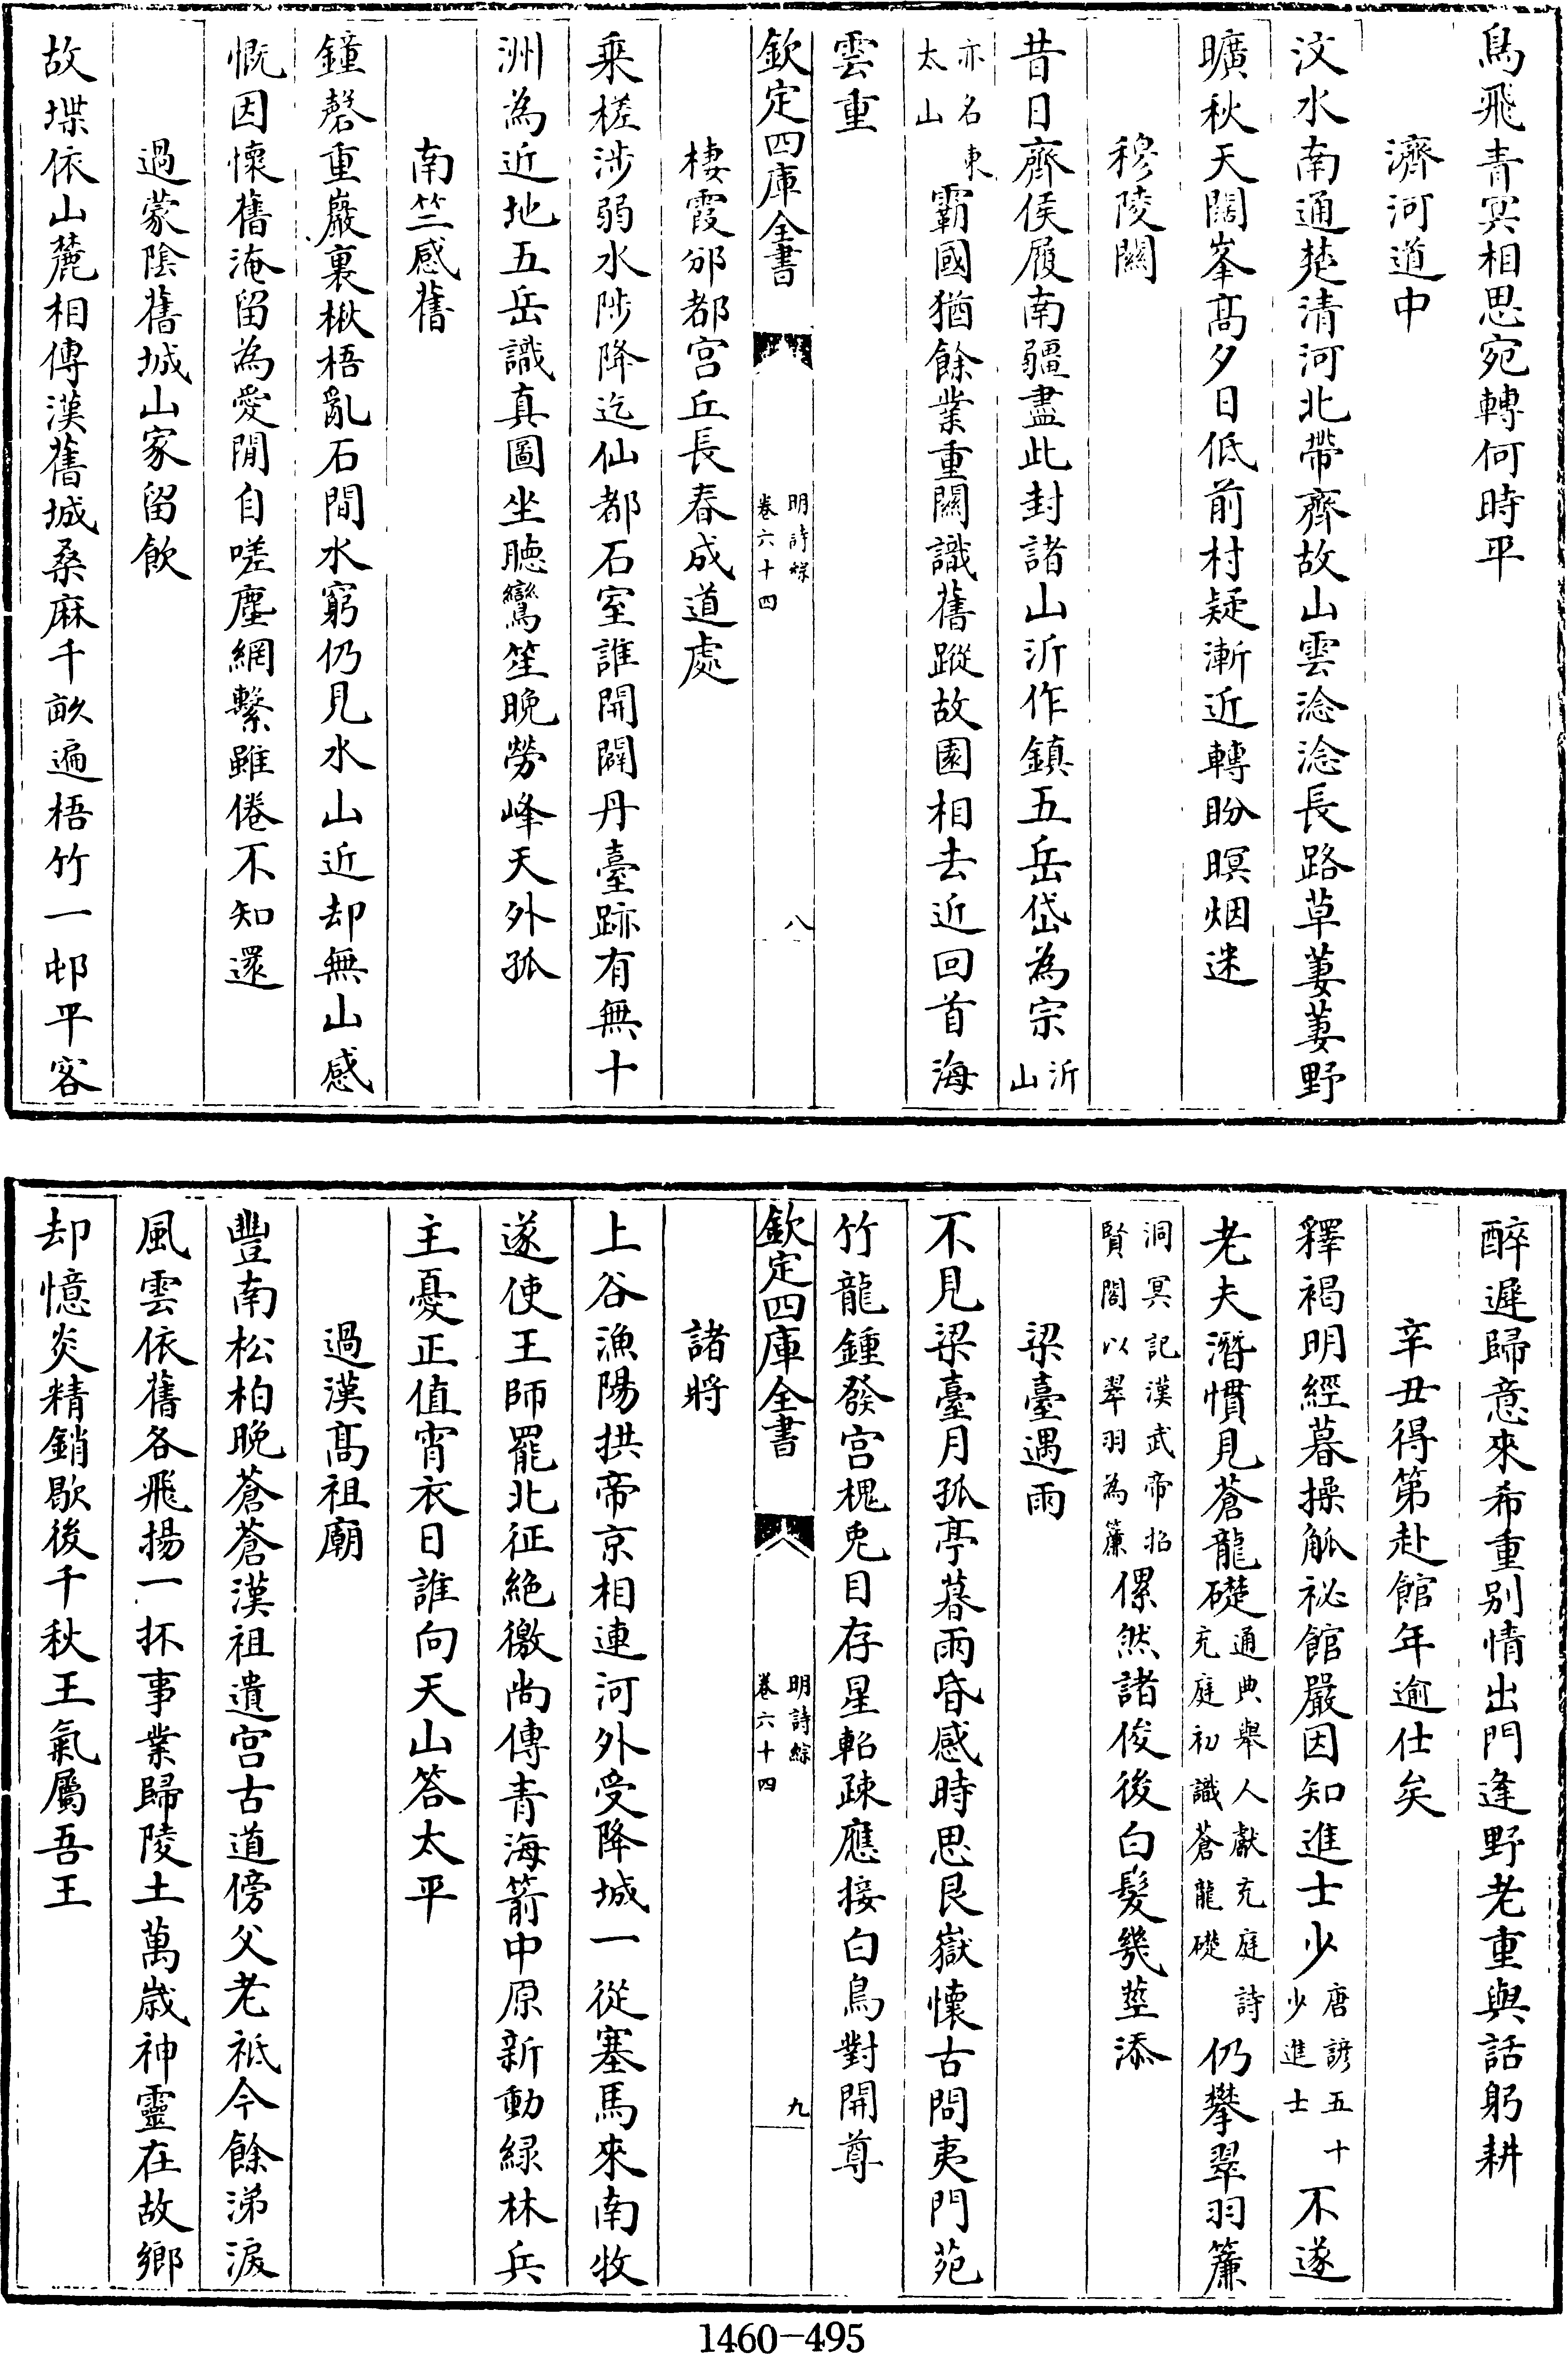 鳥飛青冥相思宛轉何時平
濟河道中
汶水南通楚清河北帶齊故山雲淰淰長路草萋萋野
曠秋天闊峯髙夕日低前村疑漸近轉盼暝烟迷
穆陵關
昔日齊侯履南疆盡此封諸山沂作鎮五岳岱為宗沂山
亦名東太山霸國猶餘業重關識舊蹤故園相去近回首海
雲重
欽定四庫全書
明詩綜
卷六十四
八
棲霞邠都宫丘長春成道處
乘槎涉弱水陟降迄仙都石室誰開闢丹臺跡有無十
洲為近地五岳識真圖坐聽鸞笙晚勞峰天外孤
南竺感舊
鐘磬重巖裏楸梧亂石間水窮仍見水山近却無山感
慨因懐舊淹留為愛閒自嗟塵網繫雖倦不知還
過蒙隂舊城山家留飲
故堞依山麓相傳漢舊城桑麻千畝遍梧竹一邨平客
醉遲歸意來希重别情出門逢野老重與話躬耕
辛丑得第赴館年逾仕矣
釋褐明經暮操觚祕館嚴因知進士少唐諺五十少進士不遂
老夫潛慣見蒼龍礎通典舉人獻充庭詩充庭初識蒼龍礎仍攀翠羽簾
洞冥記漢武帝招賢閣以翠羽為簾傫然諸俊後白髮幾莖添
梁臺遇雨
不見梁臺月孤亭暮雨昏感時思艮嶽懐古問夷門苑
竹龍鍾發宫槐兎目存星軺疎應接白鳥對開尊
欽定四庫全書
明詩綜
卷六十四
九
諸將
上谷漁陽拱帝京相連河外受降城一從塞馬來南牧
遂使王師罷北征絶徼尚傳青海箭中原新動緑林兵
主憂正值宵衣日誰向天山答太平
過漢髙祖廟
豐南松柏晚蒼蒼漢祖遺宫古道傍父老祗今餘涕淚
風雲依舊各飛揚一抔事業歸陵土萬歲神靈在故鄉
却憶炎精銷歇後千秋王氣屬吾王
1460-495